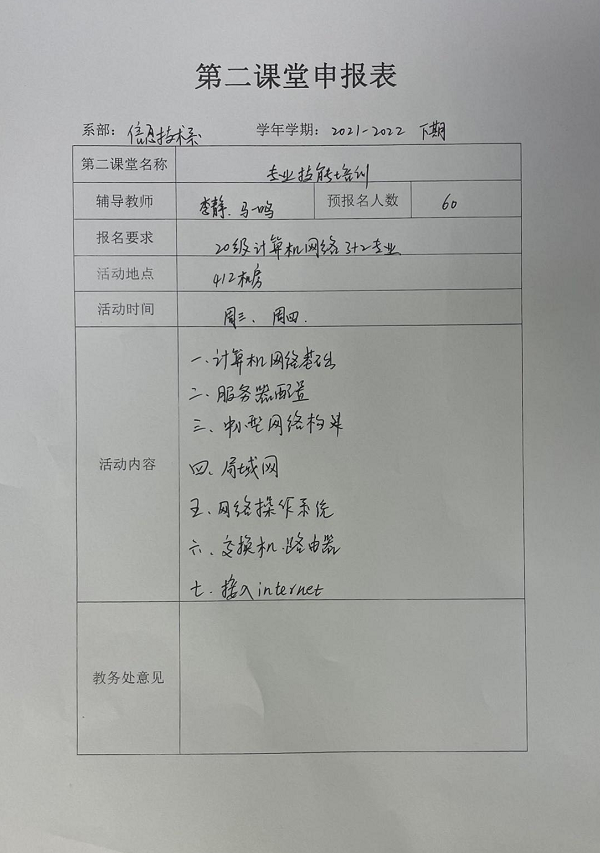 第二课堂申报表
系部：信息技术系 学年学期：2021-2022 下期
第二课堂名称 专业技能培训
辅导教师 李静、马一鸣 预报名人数 60
报名要求 20级计算机网络3+2专业
活动地点 412机房
活动时间 周三、周四.
活动内容
一.计算机网络基础
二.服务器配置
三.中小型网络构建
四.局域网
五.网络操作系统
六.交换机.路由器
七.接入internet
教务处意见